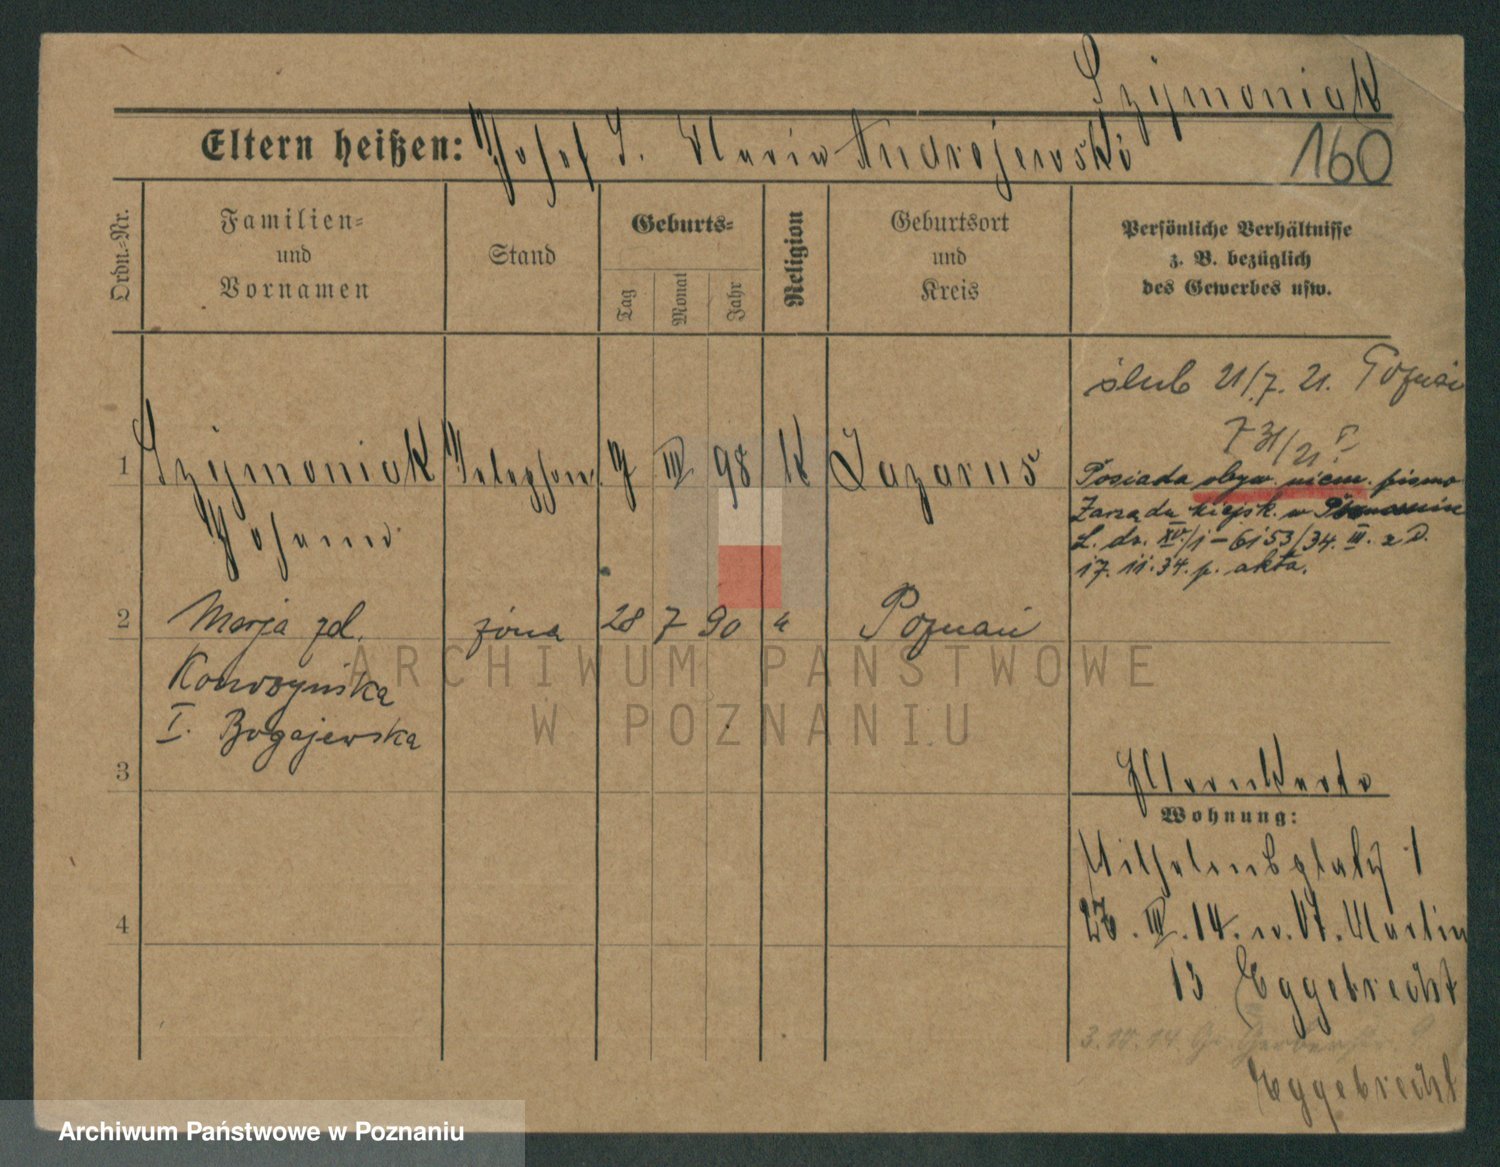 Szymoniak
Eltern heißen: Josef u. Maria Andrejewski
160
Ordn.-Nr.
Familien-
und
Vornamen
Stand
Geburts-
Tag
Monat
Jahr
Religion
Geburtsort
und
Kreis
Persönliche Verhältnisse
z. B. bezüglich
des Gewerbes usw.
ślub 21/7. 21. Poznań
1 Szymoniak III 98 K Lazarus
Johann
Posiada obyw. niem. pismo
Zarządu miejsk. w Poznaniu
L. dz. XV/1-6153/34. III. z d.
17.11.34. p. akta.
2 Marja zd. żona 28 7 90 " Poznań
I. Bogajewska
3
Elternkarte
Wohnung:
Wilhelmsplatz 1
4
III. 14. n. St. Martin
13 Eggebrecht
3.10.14. Gr. Gerberstr. 9
Eggebrecht
ARCHIWUM PAŃSTWOWE
W POZNANIU
Archiwum Państwowe w Poznaniu